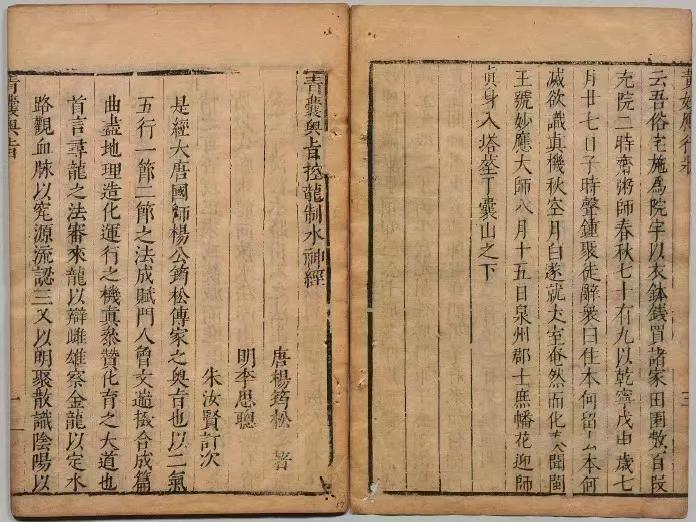 黃妙應行
三
云吾俗宅施為院宇以衣鉢錢買諸家田園數百段
充院二時齋粥師春秋七十有九以乾寧戊歲七
月廿七日子時聲鍾聚徒辭衆曰住本何留本何
滅欲識真機秋空月白遂就丈室奄然而化閩
王號妙應大師八月十五日泉州郡士庶幡花迎師
真身入塔塟于囊山之下
青囊奧旨龍制水神經
唐楊筠松 著
明李思聰
朱汝賢訂次
是經大唐國師楊公筠松傳家之奧旨也以二氣
五行一節二節之法成賦門人曾文遄合成篇
曲盡地理造化運行之機真叅贊化育之大道也
首言尋龍之法審來龍以辯雌雄察金龍以定水
路觀血脉以究源流認三叉以明聚散識陰陽以
青囊奧旨
一